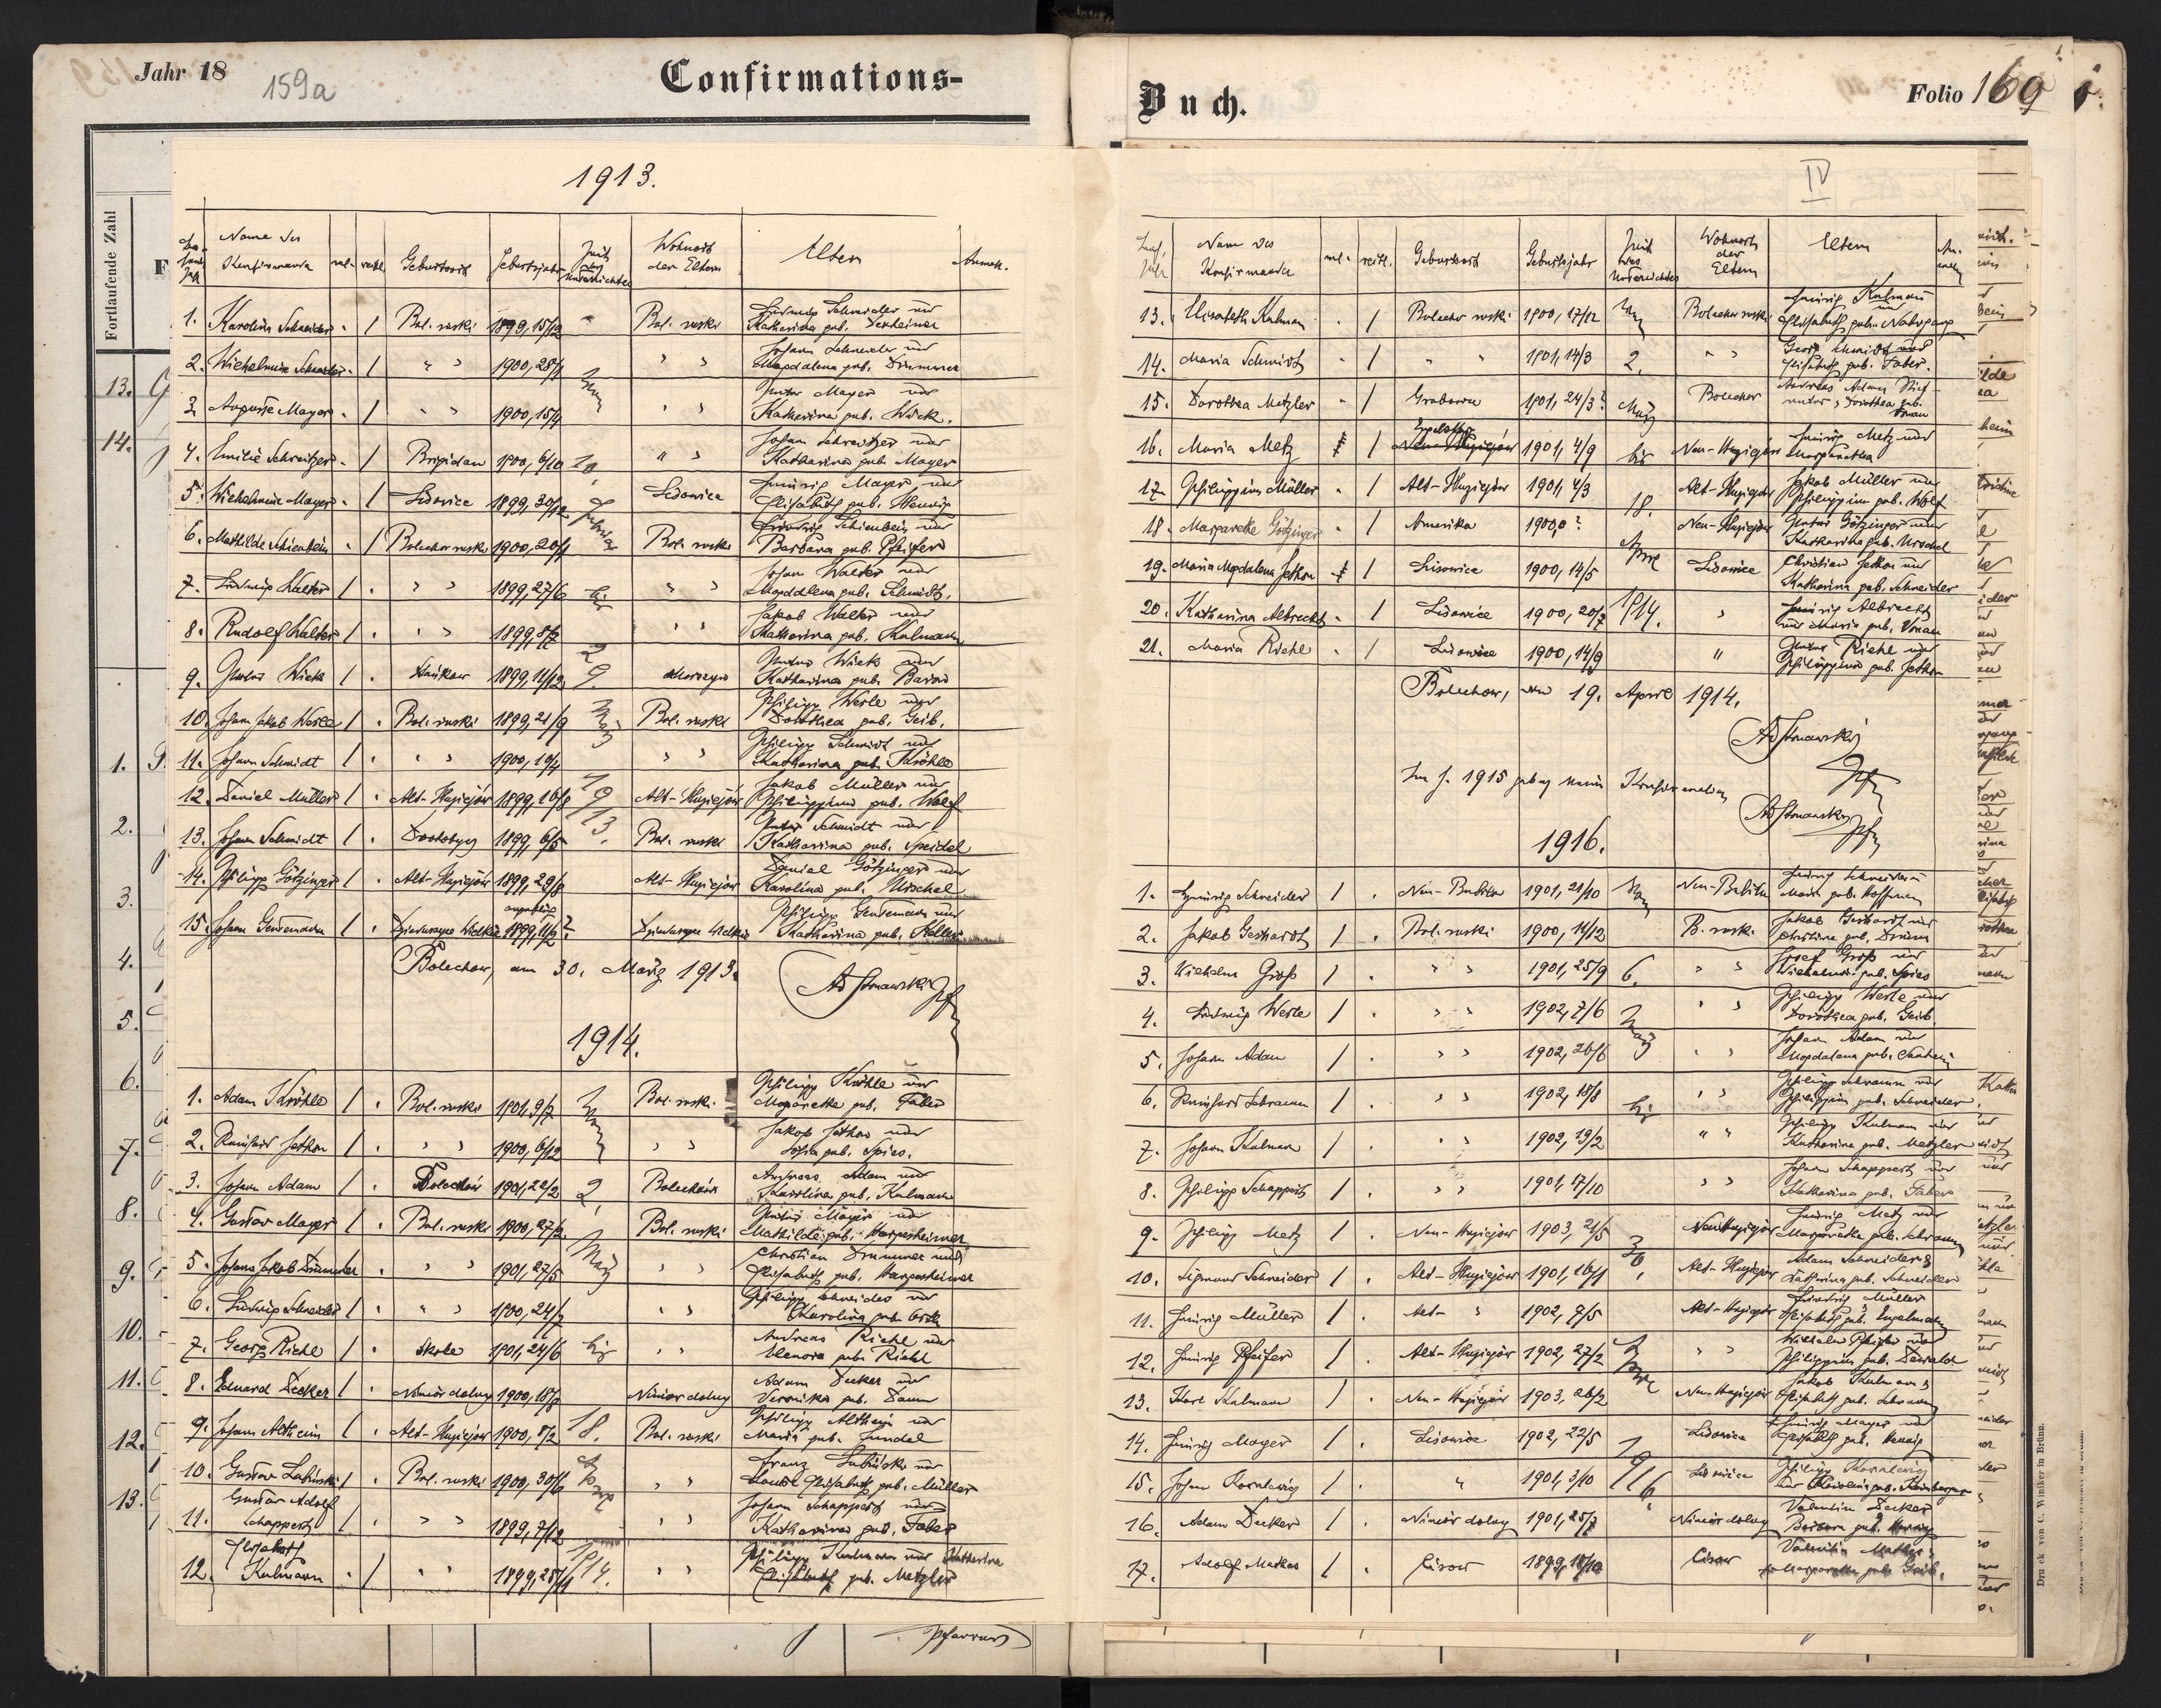 Jahr 18
159a
Confirmations-
1913.
Name des
Konfirmanden
ml.
weibl.
Geburtsort
Geburtsjahr
Zeit
des
Unterrichtes
Wohnort
der Eltern
Eltern
Anmerk.
Fortlaufende Zahl
1. Karolina Schneider . / Bol. ruski 1899, 15/12 Bol. ruski Ludwig Schneider und
Katharina geb. Dexheimer
2. Wilhelmine Schneider . / " " 1900, 28/1 " " Johann Schneider und
Magdalena geb. Drummer
3. Auguste Mayer . / " " 1900, 15/4 " " Peter Mayer und
Katharina geb. Wick.
4. Emilie Schweitzer . / Brigidau 1900, 6/10 " " Johann Schweitzer und
Katharina geb. Mayer
5. Wilhelmine Mayer . / Lisowice 1899, 30/12 Lisowice Heinrich Mayer und
Elisabeth geb. Hennig
6. Mathilde Schienbein . / Bolechow ruski 1900, 20/1 Bol. ruski Ludwig Schienbein und
Barbara geb. Pfeifer
7. Ludwig Walter / . " " 1899, 27/6 bis " " Johann Walter und
Magdalena geb. Schmidt.
8. Rudolf Walter / . " " 1899, 8/2 " " Jakob Walter und
Katharina geb. Kulmann
9. Peter Wick / . 1899, 11/12 Morszyn Peter Wick und
Katharina geb.
10. Johann Jakob Werle / . Bol. ruski 1899, 21/9 März Bol. ruski Philipp Werle und
Dorothea geb. Geib.
11. Johann Schmidt / . " " 1900, 19/4 " " Philipp Schmidt und
Katharina geb. Kröhle
12. Daniel Müller / . Alt-Hugiejów 1899, 16/8 1913. Alt-Hugiejów Jakob Müller und
Philippine geb. Wolf
13. Johann Schmidt / . Drohobycz 1899, 6/5 Bol. ruski Peter Schmidt und
Katharina geb. Speidel
14. Philipp Götzinger / . Alt-Hugiejów 1899, 29/8 Alt-Hugiejów Daniel Götzinger und
Karolina geb. Urschel
angeblich
15. Johann Gensemann / . 1899, 11/2 ? Philipp Gensemann und
Katharina geb. Keller
Bolechow, am 30. März 1913.
1914.
1. Adam Kröhle / . Bol. ruski 1901, 9/7 Vom Bol. ruski Philipp Kröhle und
Margarethe geb. Faber
2. Reinhard Jethon / . " " 1900, 6/12 " " Jakob Jethon und
Sofia geb. Spies.
3. Johann Adam / . Bolechów 1901, 22/2 2. Bolechów Andreas Adam und
Karolina geb. Kulmann
4. Gustav Mayer / . Bol. ruski 1900, 27/2. März Bol. ruski Peter Mayer und
Mathilde geb. Hargesheimer
5. Johann Jakob Drummer . " " 1901, 27/5 " " Christian Drummer und
Elisabeth geb. Hargesheimer
6. Ludwig Schneider / . " " 1900, 24/7 " " Philipp Schneider und
Karolina geb.
7. Georg Riehl / . Skole 1901, 24/6 bis " " Andreas Riehl und
Elenora geb. Riehl
8. Eduard Decker / . Niniów dolny 1900, 18/8 Niniów dolny Adam Decker und
Veronika geb. Daum
9. Johann Altheim / . Alt-Hugiejów 1900, 8/2 18. Bol. ruski Philipp Altheim und
Maria geb. Hundel
10. Gustav Lubinski / . Bol. ruski 1900, 30/6 April " " Franz Lubinski und
Louise Elisabeth geb. Müller
Gustav Adolf
11. Schappert / . " " 1899, 7/12 " " Johann Schappert und
Katharina geb. Faber
Elisabeth
12. Kulmann . / " " 1899, 28/11 1914. " " Philipp Kulmann und Katharina
Elisabeth geb. Metzler
Pfarrer
Buch.
Folio 160
IV
Lauf.
Zahl
Name des
Konfirmanden
ml.
weibl.
Geburtsort
Geburtsjahr
Zeit
des
Unterrichtes
Wohnort
der
Eltern
Eltern
13. Elisabeth Kulman . / Bolechow ruski 1900, 17/12 Vom Bolechow ruski Heinrich Kulmann
und
Elisabeth geborne Nahrgang
14. Maria Schmidt . / " " 1901, 14/3 2. " " Georg Schmidt und
Elisabeth geb. Faber.
15. Dorothea Metzler . / Grabowa 1901, 24/3 ? März Bolechow Andreas Adam Stief-
vater, Dorothea geb.
Vonau
Engelsberg
16. Maria Metz / Neu-Hugiejów 1901, 4/9 bis Neu-Hugiejów Heinrich Metz und
Margaretha
17. Philippine Müller . / Alt-Hugiejów 1901, 4/3 18. Alt-Hugiejów Jakob Müller und
Philippine geb. Wolf
18. Margarethe Götzinger . / Amerika 1900, ? Neu-Hugiejów Peter Götzinger und
Katharina geb. Urschel
19. Maria Magdalena Jethon / Lisowice 1900, 14/5 April Lisowice Christian Jethon und
Katharina geb. Schneider
20. Katharina Albrecht . / Lisowice 1900, 20/7 1914. " Heinrich Albrecht
und Maria geb. Vonau
21. Maria Riehl . / Lisowice 1900, 14/9 " Peter Riehl und
Philippine geb. Jethon
Bolechow, den 19. April 1914.
Im J. 1915 gab es keine Konfirmation
1916.
1. Heinrich Schneider / . Neu-Babilon 1901, 21/10 Vom Neu-Babilon Heinrich Schneider u
Maria geb. Hoffmann
2. Jakob Gerhardt / . Bol. ruski 1900, 14/12 B. ruski Jakob Gerhardt und
Christine geb.
3. Wilhelm Groß / . " " 1901, 25/9 6. " " Josef Groß und
Wilhelmine geb. Spies
4. Ludwig Werle / . " " 1902, 7/6 März " " Philipp Werle und
Dorothea geb. Geib.
5. Johann Adam / . " " 1902, 26/6 " " Johann Adam und
Magdalena geb.
6. Reinhard Schramm / . " " 1902, 18/8 bis " " Philipp Schramm und
Philippine geb. Schneider
7. Johann Kulmann / . " " 1902, 19/2 " " Philipp Kulmann und
Katharina geb. Metzler
8. Philipp Schappert / . " " 1901, 17/10 " " Johann Schappert und
Katharina geb. Faber
9. Philipp Metz / . Neu-Hugiejów 1903, 21/5 Neu Hugiejów Heinrich Metz und
Margarethe geb. Schramm
10. Sigmund Schneider / . Alt-Hugiejów 1901, 16/1 30. Alt-Hugiejów Adam Schneider &
Katharina geb. Schneider
11. Heinrich Müller / . Alt- " 1902, 9/5 Alt-Hugiejów Friedrich Müller
Elisabeth geb. Engelmann
12. Heinrich Pfeifer / . Alt-Hugiejów 1902, 27/2 April " " Wilhelm Pfeifer und
Philippine geb. Dewald
13. Karl Kulmann / . Neu-Hugiejów 1903, 26/2 Neu-Hugiejów Jakob Kulmann &
Elisabeth geb. Schramm
14. Heinrich Mayer / . Lisowice 1902, 22/5 Lisowice Heinrich Mayer und
Elisabeth geb. Hennig
15. Johann Kovalewicz / . " 1901, 3/10 1916. Lisowice Philipp Kovalewicz
und Karolina geb.
16. Adam Decker / . Niniów dolny 1901, 25/7 Niniów dolny Valentin Decker
Barbara geb.
17. Adolf Mathes / . Cisow 1899, 18/10 Cisow Valentin Mathes
Margaretha geb. Geib.
Druck von C. Winiker in Brünn.